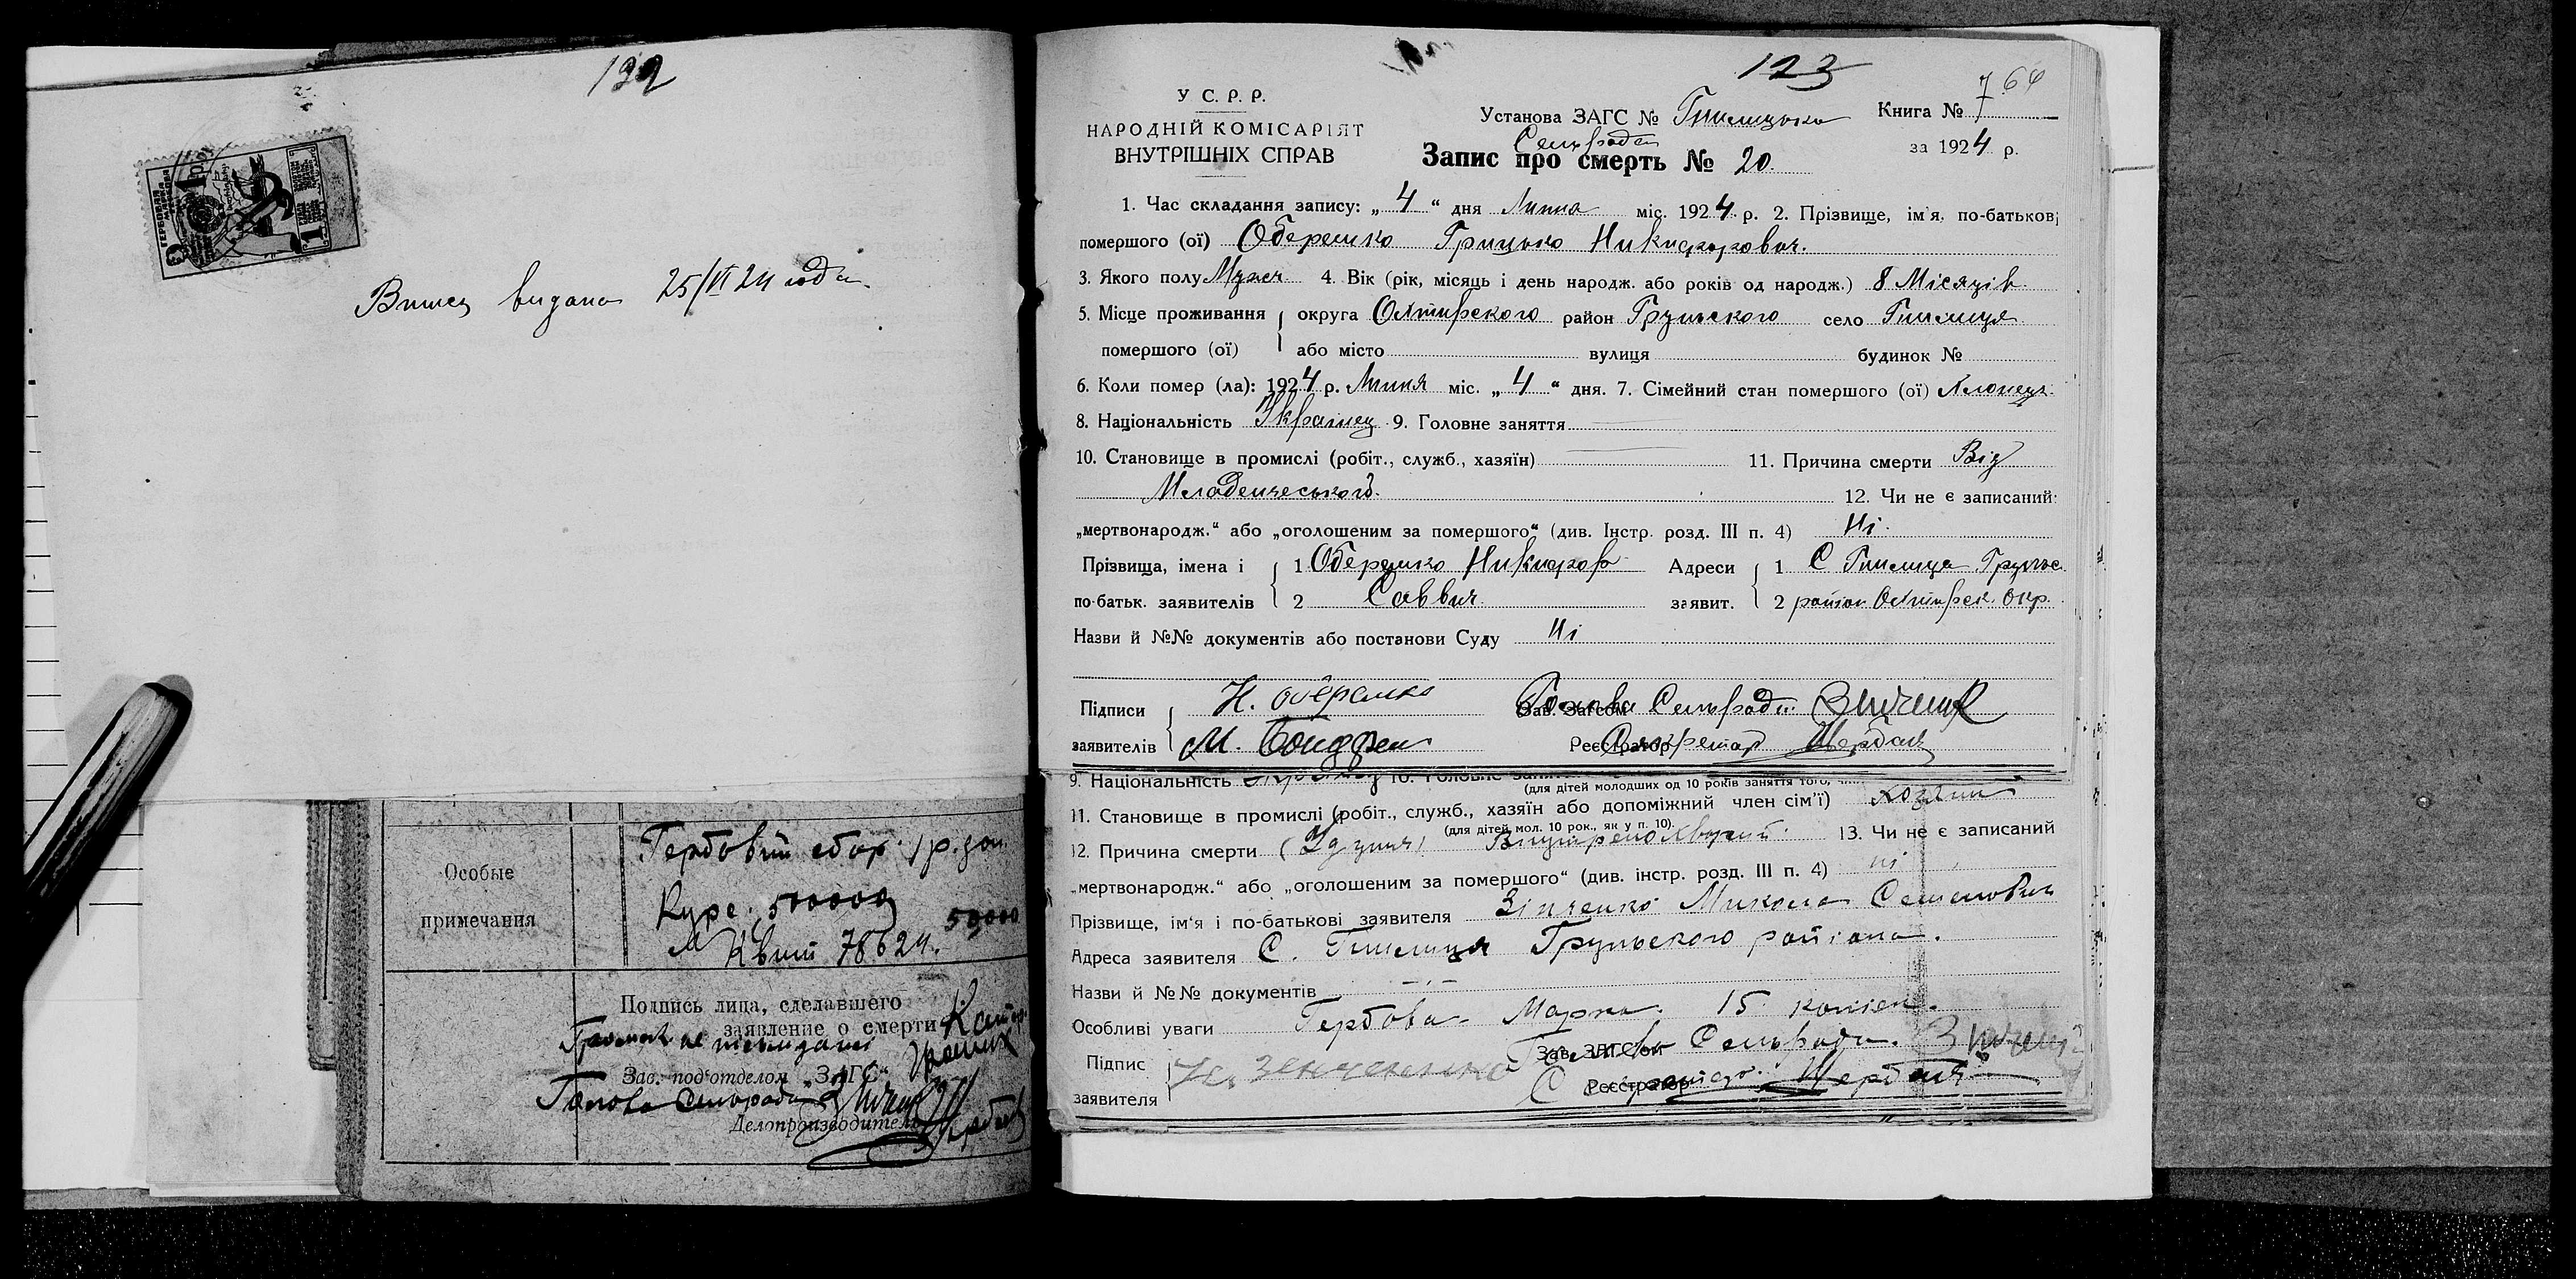 132
ГЕРБОВАЯ МАРКА
1
Випис видана 25/VI 24 года.
Особые
примечания
Гербовий сбор 1 р. зол.
Курс 500000
50,000
Квит 78624.
Подпись лица, сделавшего
заявление о смерти
Зав. под'отделом „ЗАГС“
Голова Сельради
Делопроизводитель
123
64
7
У С. Р. Р.
НАРОДНІЙ КОМІСАРІЯТ
ВНУТРІШНІХ СПРАВ
Установа ЗАГС №
Сельради
Книга №
за 1924 р.
Запис про смерть № 20.
1. Час складання запису: „4“ дня Липня міс. 1924 р. 2. Прізвище, ім'я, по-батькові
помершого (ої) Оберемко Грицько Никифорович.
3. Якого полу Мужеч 4. Вік (рік, місяць і день народж. або років од народж.) 8 Місяців.
5. Місце проживання округа Охтирского район Груньского село
помершого (ої) або місто вулиця будинок №
6. Коли помер (ла): 1924 р. Липня міс. „4“ дня. 7. Сімейний стан помершого (ої) Хлопець.
8. Національність Українец 9. Головне заняття
10. Становище в промислі (робіт., служб., хазяїн) 11. Причина смерти Від
Младенческого. 12. Чи не є записаний
„мертвонародж.“ або „оголошеним за помершого“ (див. Інстр. розд. III п. 4) Ні.
Прізвища, імена і 1 Оберемко Никифор Адреси 1 С
по-батьк. заявителів 2 Саввич. заявит. 2 район Охтирск. Окр.
Назви й №№ документів або постанови Суду Ні
Підписи Н. Оберемко Зав. Загсом Голова Сельради
заявителів М. Реєстратор Секретар Щербак
9. Національність
(для дітей молодших од 10 років заняття того,
11. Становище в промислі (робіт., служб., хазяїн або допоміжний член сім'ї) Хозяин
(для дітей мол. 10 рок., як у п. 10).
12. Причина смерти 13. Чи не є записаний
„мертвонародж.“ або „оголошеним за помершого“ (див. інстр. розд. III п. 4) ні
Прізвище, ім'я і по-батькові заявителя Зінченко Микола Семенович
Адреса заявителя С. Груньского района.
Назви й №№ документів
Особливі уваги Гербова Марка 15 копіек.
Підпис Зав. ЗАГС'ом Голова Сельради.
заявителя Реєстратор Секретар Щербак